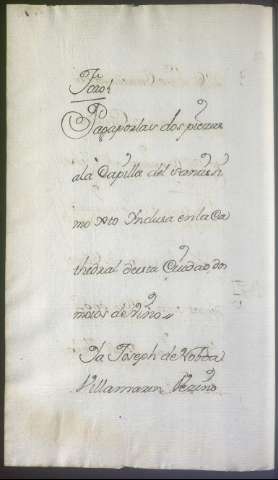 Foro!
Paga por las dos piezas
a la Capilla del Santisi
mo Xto Inclusa en la Ca
thedral de esta Ciudad, dos
moios de vino
Ja Joseph de Noboa
Villamarin Vezino